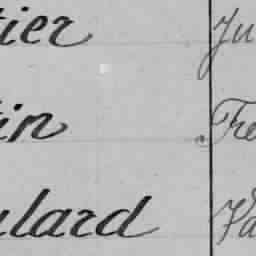 tier Ju
tin Fre
ulard Va